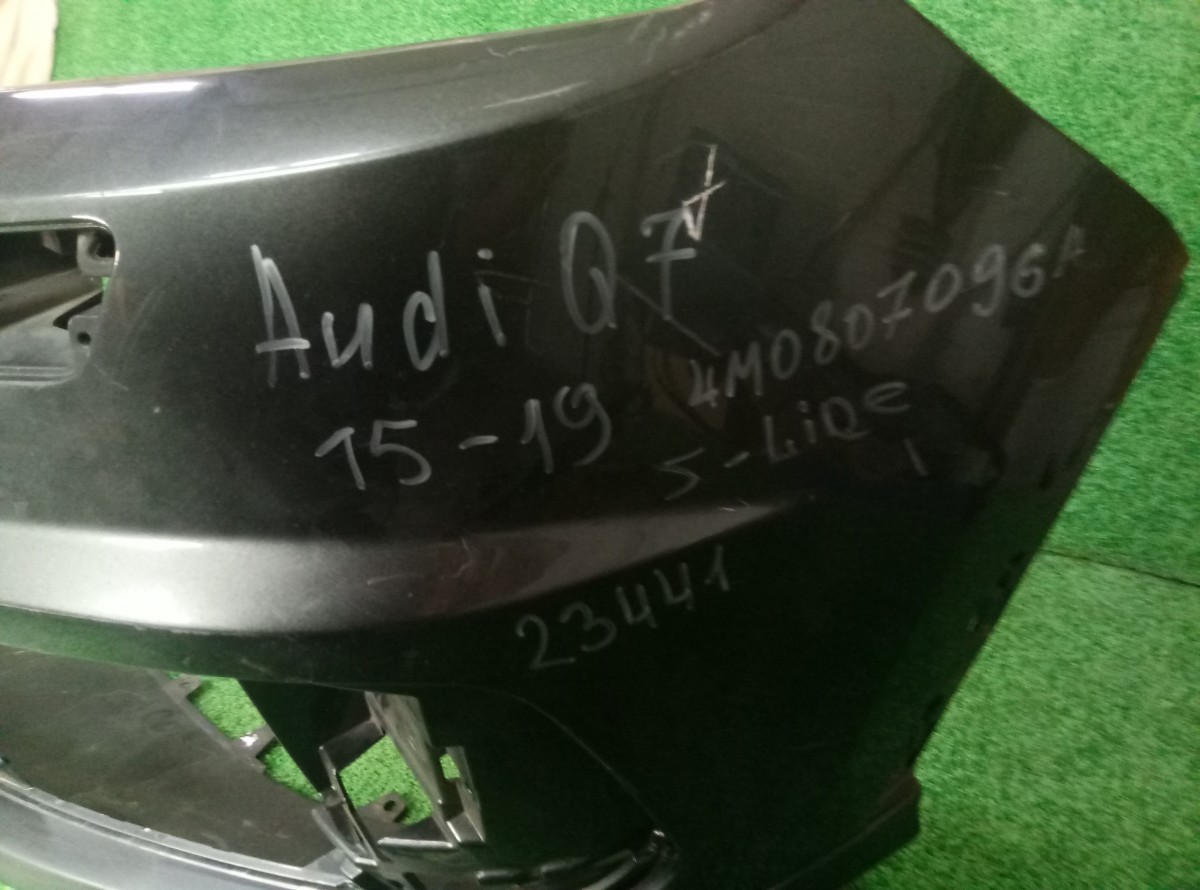 Audi Q7
4M0807096A
15-19
S-Line
23441